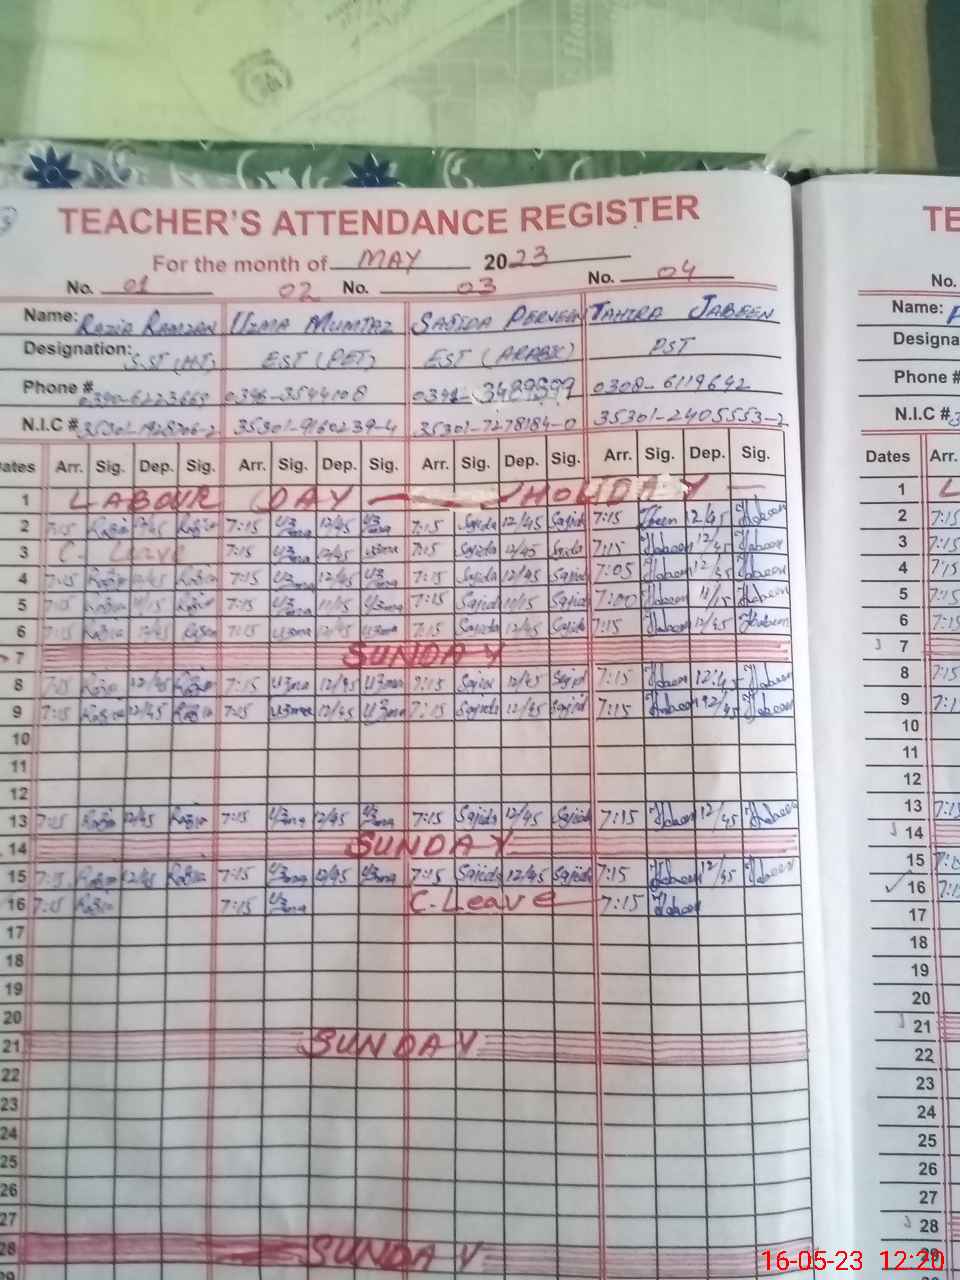 TEACHER'S ATTENDANCE REGISTER TE
For the month of MAY 2023
No. 01 02 No. 03 No. 04 No.
Name: RAZIA RAMZAN UZMA MUMTAZ SAJIDA PERVEEN TAHIRA JABEEN Name:
Designation: S.ST (HT) EST (PET) EST (ARABIC) PST Designa
Phone # 0346-3544108 0308-6119642 Phone #
N.I.C # 35301-9160239-4 35301-7278184-0 35301-2405553-2 N.I.C #
ates Arr. Sig. Dep. Sig. Arr. Sig. Dep. Sig. Arr. Sig. Dep. Sig. Arr. Sig. Dep. Sig. Dates Arr.
1 LABOUR DAY HOLIDAY 1
2 7:15 Razia 12/45 Razia 7:15 Uzma 12/45 Uzma 7:15 Sajida 12/45 Sajida 7:15 12/45 Jabeen 2 7:15
3 C. Leave 7:15 Uzma 12/45 Uzma 7:15 Sajida 12/45 Sajida 7:15 Jabeen 12/45 Jabeen 3 7:15
4 7:15 Razia 12/45 Razia 7:15 Uzma 12/45 Uzma 7:15 Sajida 12/45 Sajida 7:05 Jabeen 12/35 Jabeen 4 7:15
5 7:15 Razia 11/15 Razia 7:15 Uzma 11/15 Uzma 7:15 Sajida 11/15 Sajida 7:00 Jabeen 11/15 Jabeen 5 7:15
6 7:15 Razia 12/45 Razia 7:15 Uzma 12/45 Uzma 7:15 Sajida 12/45 Sajida 7:15 Jabeen 12/45 Jabeen 6 7:15
7 SUNDAY 7
8 7:15 Razia 12/45 Razia 7:15 Uzma 12/45 Uzma 7:15 Sajida 12/45 Sajida 7:15 Jabeen 12:45 Jabeen 8 7:15
9 7:15 Razia 12/45 Razia 7:15 Uzma 12/45 Uzma 7:15 Sajida 12/45 Sajida 7:15 Jabeen 12/45 Jabeen 9 7:1
10 10
11 11
12 12
13 7:15 Razia 12/45 Razia 7:15 Uzma 12/45 Uzma 7:15 Sajida 12/45 Sajida 7:15 Jabeen 12/45 Jabeen 13 7:1
14 SUNDAY 14
15 7:15 Razia 12/45 Razia 7:15 Uzma 12/45 Uzma 7:15 Sajida 12/45 Sajida 7:15 Jabeen 12/45 Jabeen 15 7:1
16 7:15 Razia 7:15 Uzma C. Leave 7:15 Jabeen 16 7:1
17 17
18 18
19 19
20 20
21 SUNDAY 21
22 22
23 23
24 24
25 25
26 26
27 27
28 SUNDAY 28
29 29
16-05-23 12:20